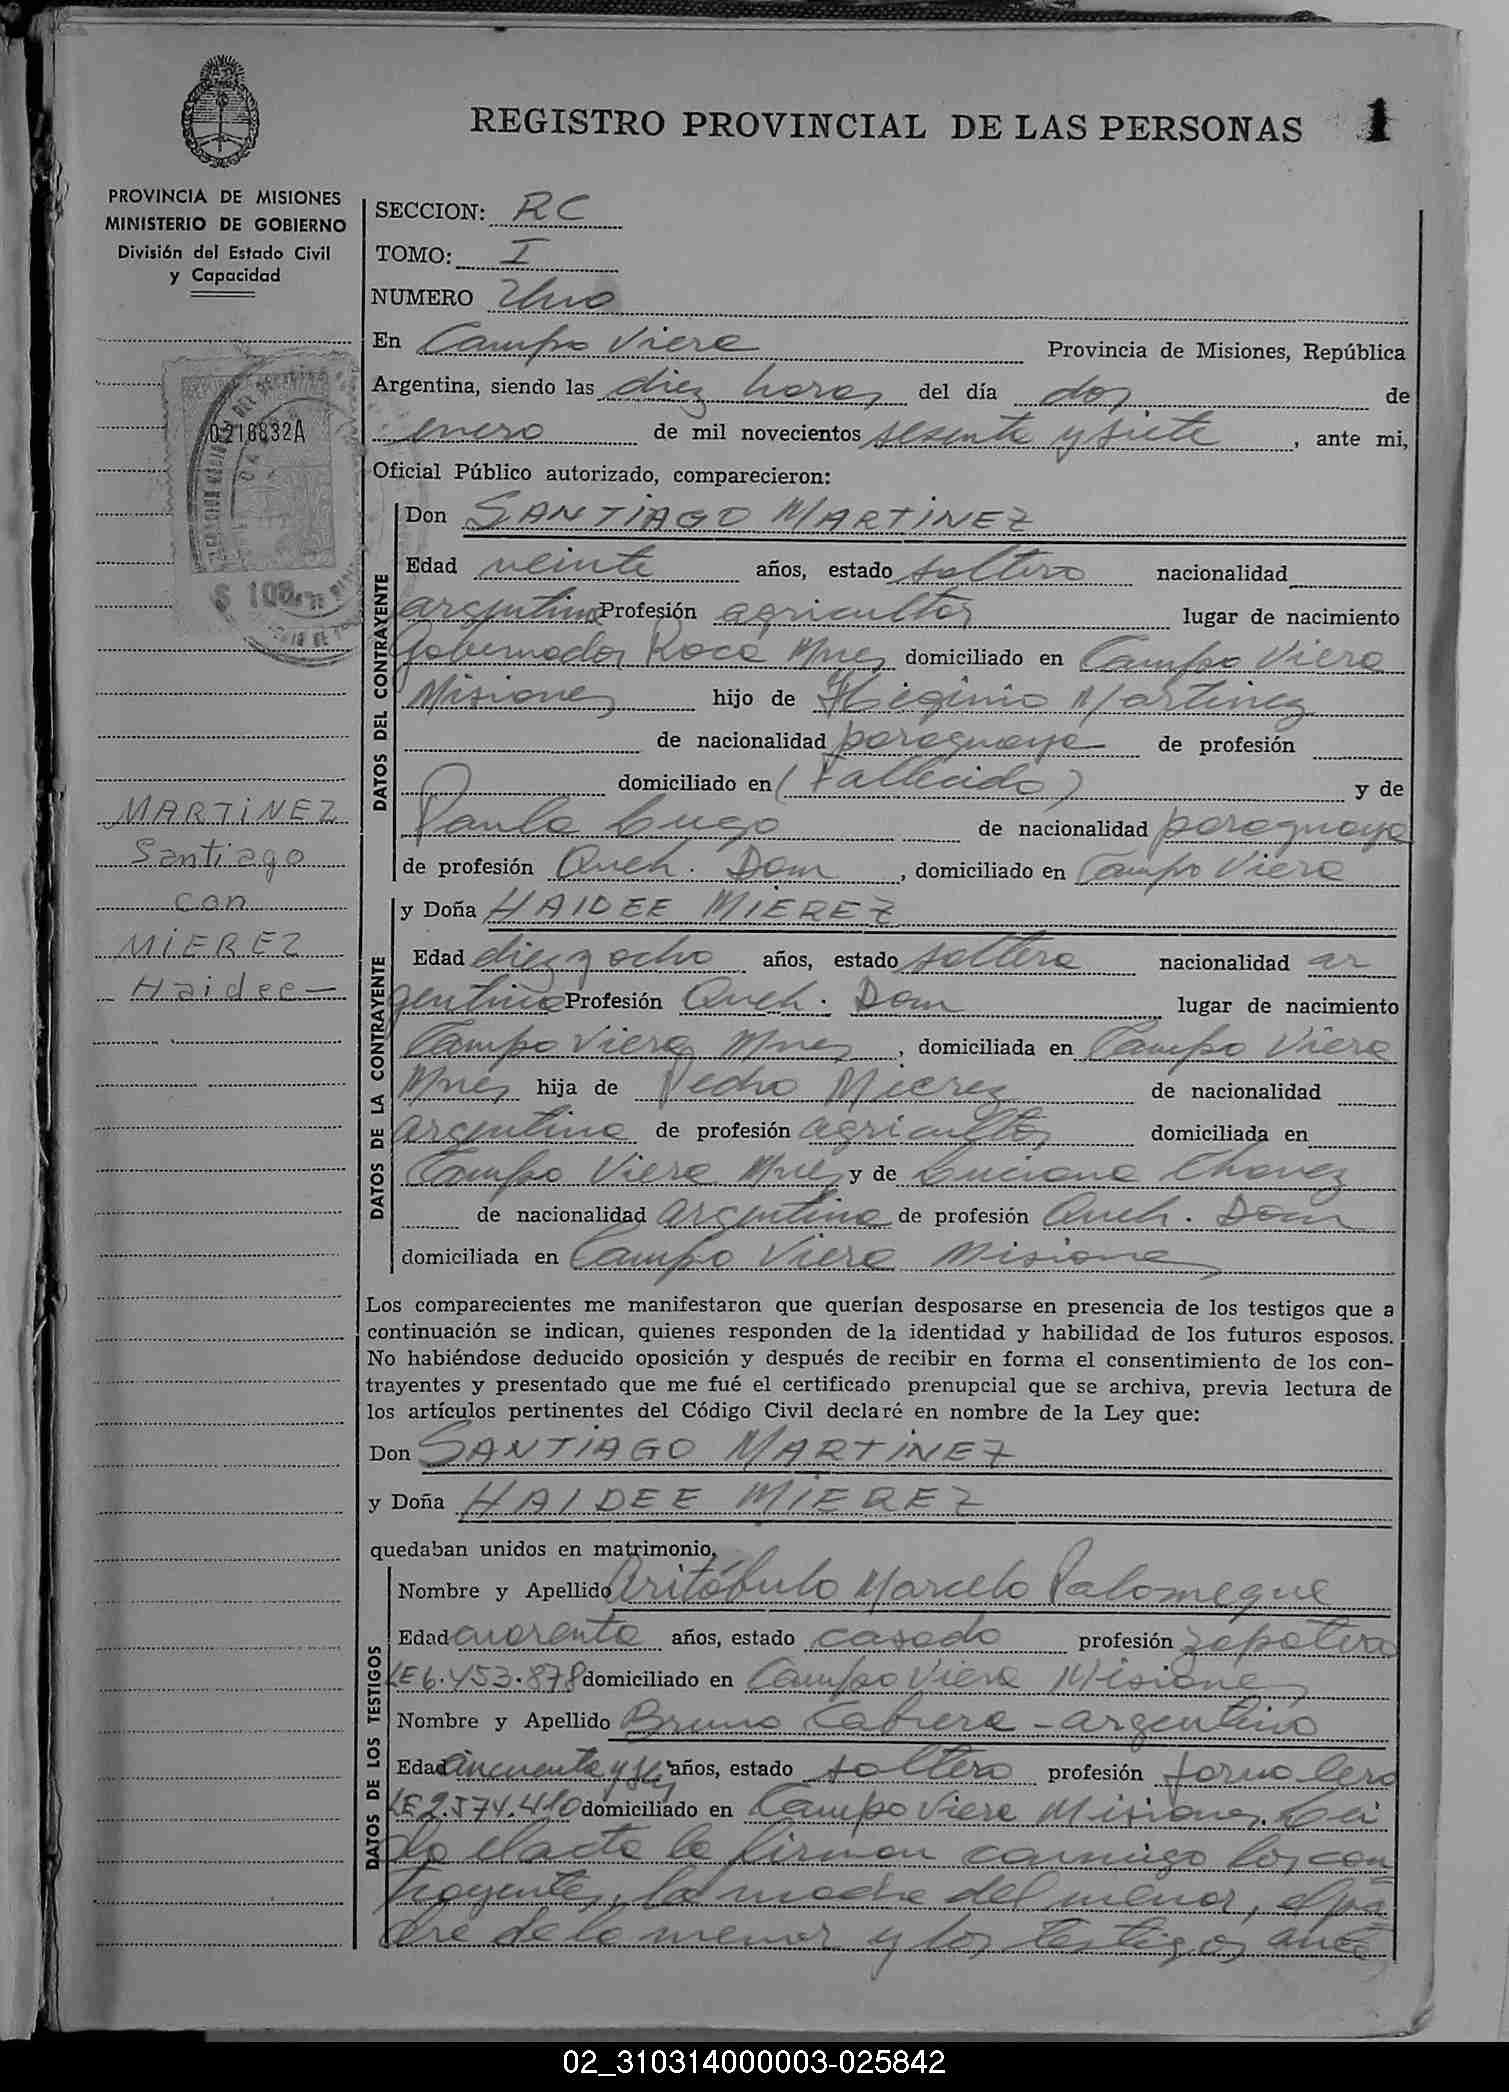 REGISTRO PROVINCIAL DE LAS PERSONAS 1
PROVINCIA DE MISIONES
MINISTERIO DE GOBIERNO
División del Estado Civil
y Capacidad
0216832A
$ 100
MARTINEZ
Santiago
con
MIEREZ
Haidee—
SECCION: RC
TOMO: I
NUMERO Uno
En Campo Viera Provincia de Misiones, República
Argentina, siendo las diez horas del día dos de
enero de mil novecientos sesenta y siete, ante mi,
Oficial Público autorizado, comparecieron:
DATOS DEL CONTRAYENTE
Don SANTIAGO MARTINEZ
Edad veinte años, estado soltero nacionalidad
argentina Profesión agricultor lugar de nacimiento
Gobernador Roca Mnes domiciliado en Campo Viera
Misiones hijo de Higinio Martinez
de nacionalidad paraguaya de profesión
domiciliado en (Fallecido) y de
Paula Lugo de nacionalidad paraguaya
de profesión Queh. Dom, domiciliado en Campo Viera
DATOS DE LA CONTRAYENTE
y Doña HAIDEE MIEREZ
Edad diez y ocho años, estado soltera nacionalidad ar
gentina Profesión Queh. Dom lugar de nacimiento
Campo Viera Mnes, domiciliada en Campo Viera
Mnes hija de Pedro Mierez de nacionalidad
argentina de profesión agricultor domiciliada en
Campo Viera Mnes y de Luciana Chavez
de nacionalidad argentina de profesión Queh. Dom
domiciliada en Campo Viera Misiones
Los comparecientes me manifestaron que querían desposarse en presencia de los testigos que a
continuación se indican, quienes responden de la identidad y habilidad de los futuros esposos.
No habiéndose deducido oposición y después de recibir en forma el consentimiento de los con-
trayentes y presentado que me fué el certificado prenupcial que se archiva, previa lectura de
los artículos pertinentes del Código Civil declaré en nombre de la Ley que:
Don SANTIAGO MARTINEZ
y Doña HAIDEE MIEREZ
quedaban unidos en matrimonio.
DATOS DE LOS TESTIGOS
Nombre y Apellido Aritóbulo Marcelo Palomeque
Edad cuarenta años, estado casado profesión zapatero
LE6.453.878 domiciliado en Campo Viera Misiones
Nombre y Apellido Bruno Cabrera - argentino
Edad cincuenta y seis años, estado soltero profesión jornalero
LE2.574.410 domiciliado en Campo Viera Misiones. Lei
do el acto lo firman conmigo los con
trayentes, la madre del menor, el pa
dre de la menor y los testigos ante
02_310314000003-025842